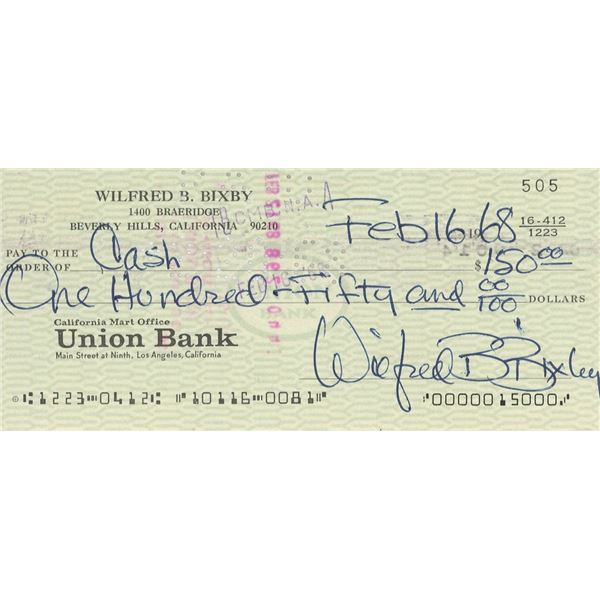 505
WILFRED B. BIXBY
1400 BRAERIDGE
BEVERLY HILLS, CALIFORNIA 90210
Feb 16 1968
16-412
1223
PAY TO THE ORDER OF Cash $150 00
One Hundred - Fifty and 00/100 DOLLARS
California Mart Office
Union Bank
Main Street at Ninth, Los Angeles, California
BANK
Wilfred B Bixby
⑆1223⑉0412⑆ ⑈10116⑉0081⑈ ⑇0000015000⑇